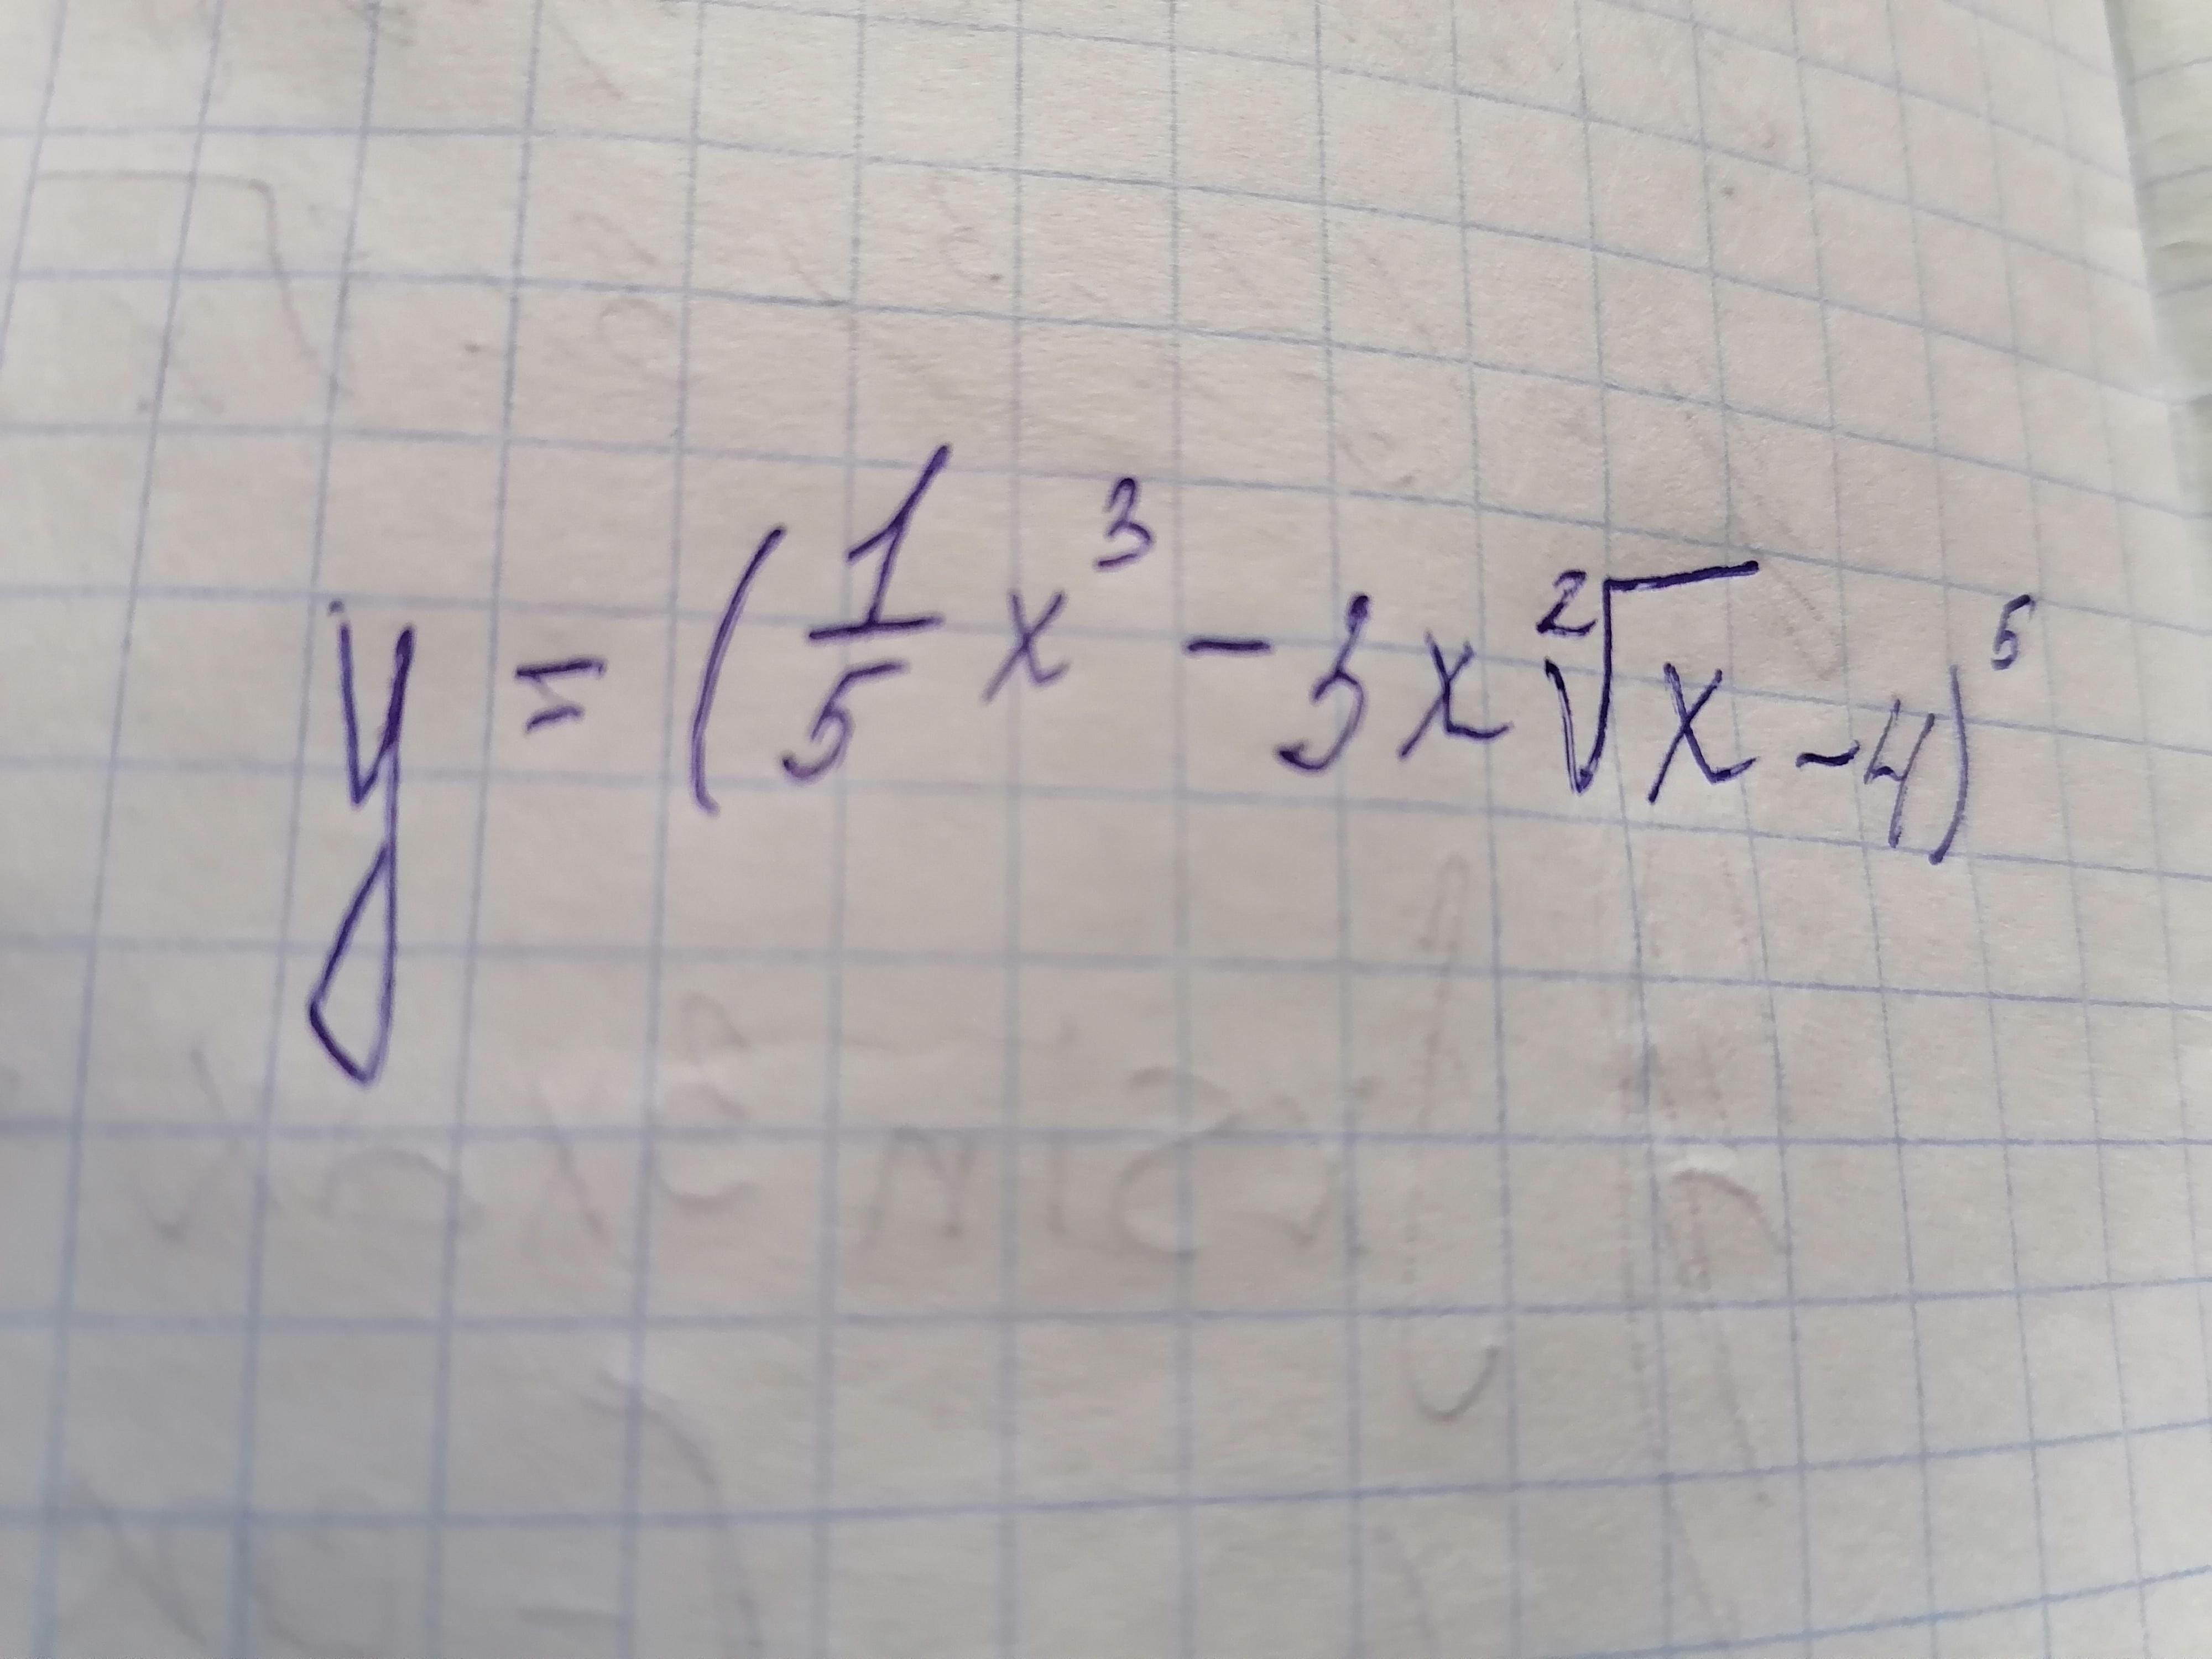 y = (1/5 x³ - 3x ²√x - 4)⁵